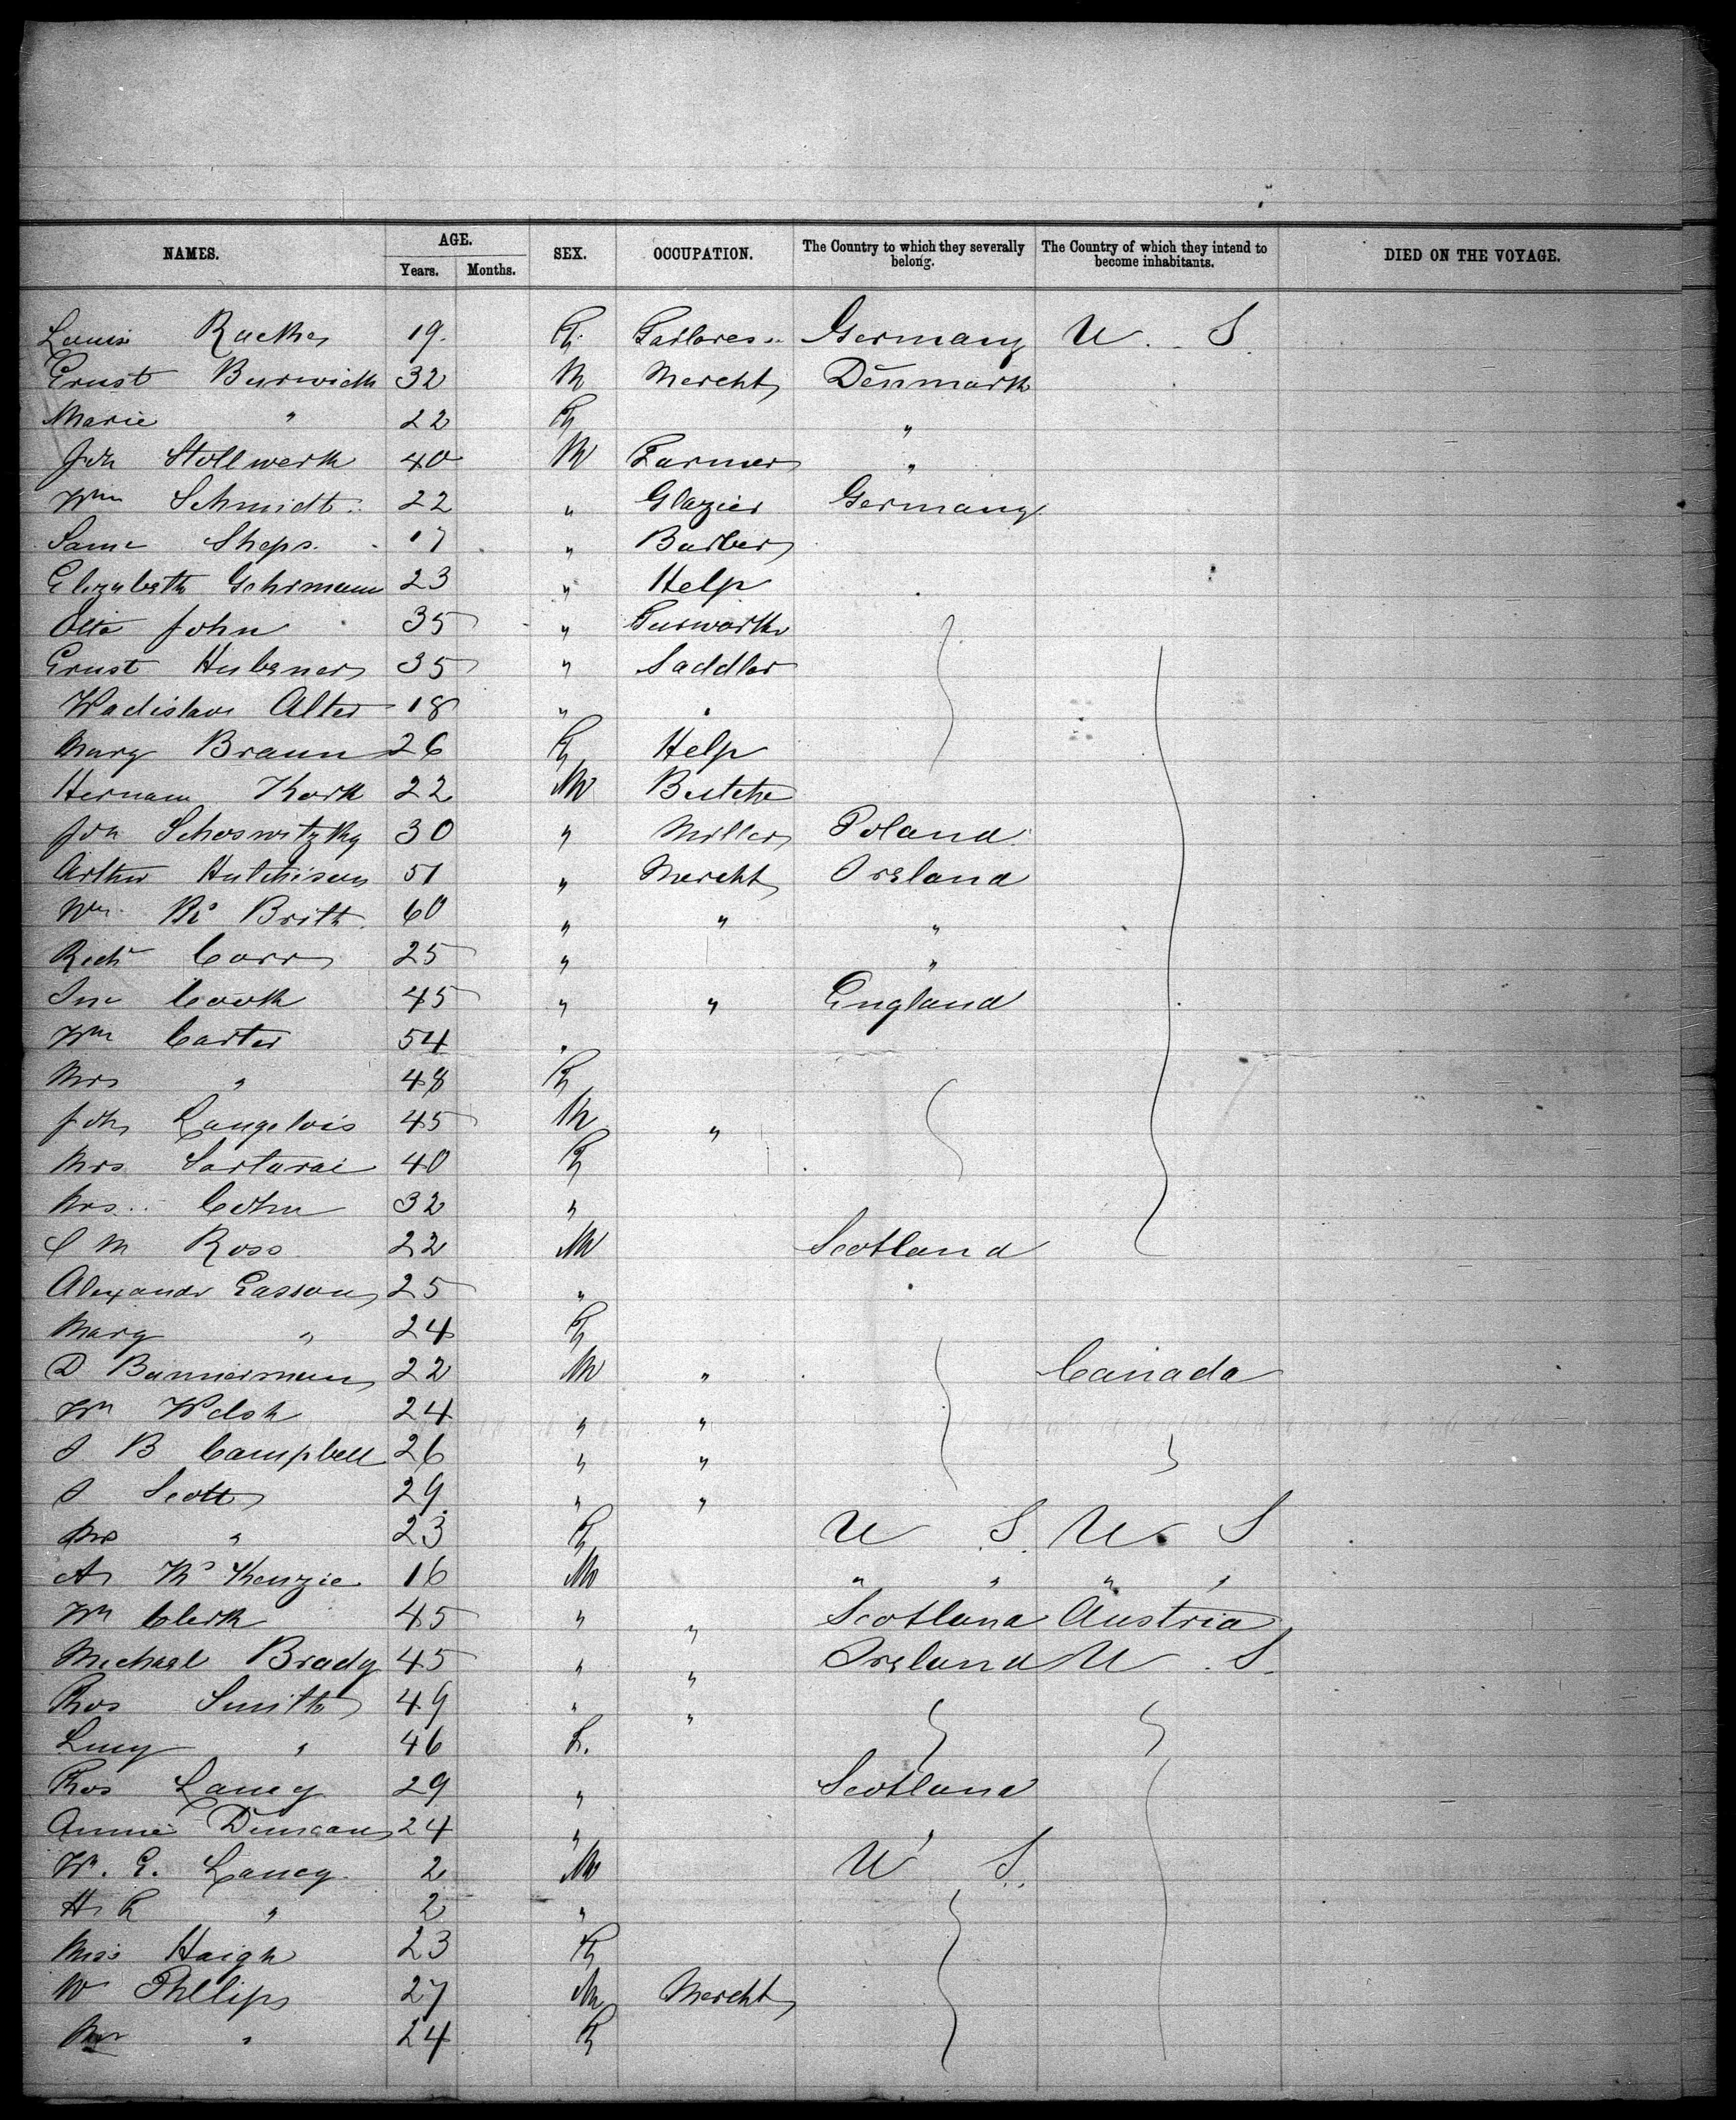 NAMES. AGE. SEX. OCCUPATION. The Country to which they severally belong. The Country of which they intend to become inhabitants. DIED ON THE VOYAGE.
Years. Months.
19 Germany U. S.
Ernst Burwich 32 M Mercht Denmark
Marie " 22 F "
Joh Stollwerk 40 M Farmer "
Wm Schmidt 22 " Glazier Germany
Sheps 17 " Barber
Elizabeth Gehrmann 23 " Help
Otto John 35 "
Ernst Hubener 35 " Saddler
Wadislaw Alter 18 " "
Mary Braun 26 F Help
Hermann Kork 22 M Butche
Joh 30 " Miller Poland
Arthur Hutchison 51 " Mercht Ireland
Wm Mc Britt 60 " " "
Richd Carr 25 " "
Cook 45 " " England
Wm Carter 54 "
Mrs " 48 F
Joh Langelois 45 M "
Mrs 40 F
Mrs. Cohn 32 "
M Ross 22 M Scotland
Alexandr Easson 25 "
Mary " 24 F
D Bannerman 22 M " Canada
Wm Welsh 24 " "
J B Campbell 26 " "
J Scott 29 " "
Mrs " 23 F U S U S
A McKenzie 16 M " " " "
Wm Clerk 45 " " Scotland Austria
Michael Brady 45 " " Ireland U. S.
Thos Smith 49 " "
Lucy " 46 F.
Laney 29 " Scotland
Annie Duncan 24 " "
W. E. Laney 2 M U S.
H R " 2 "
Miss Haigh 23 F
W Phillips 27 M Mercht
Mrs " 24 F